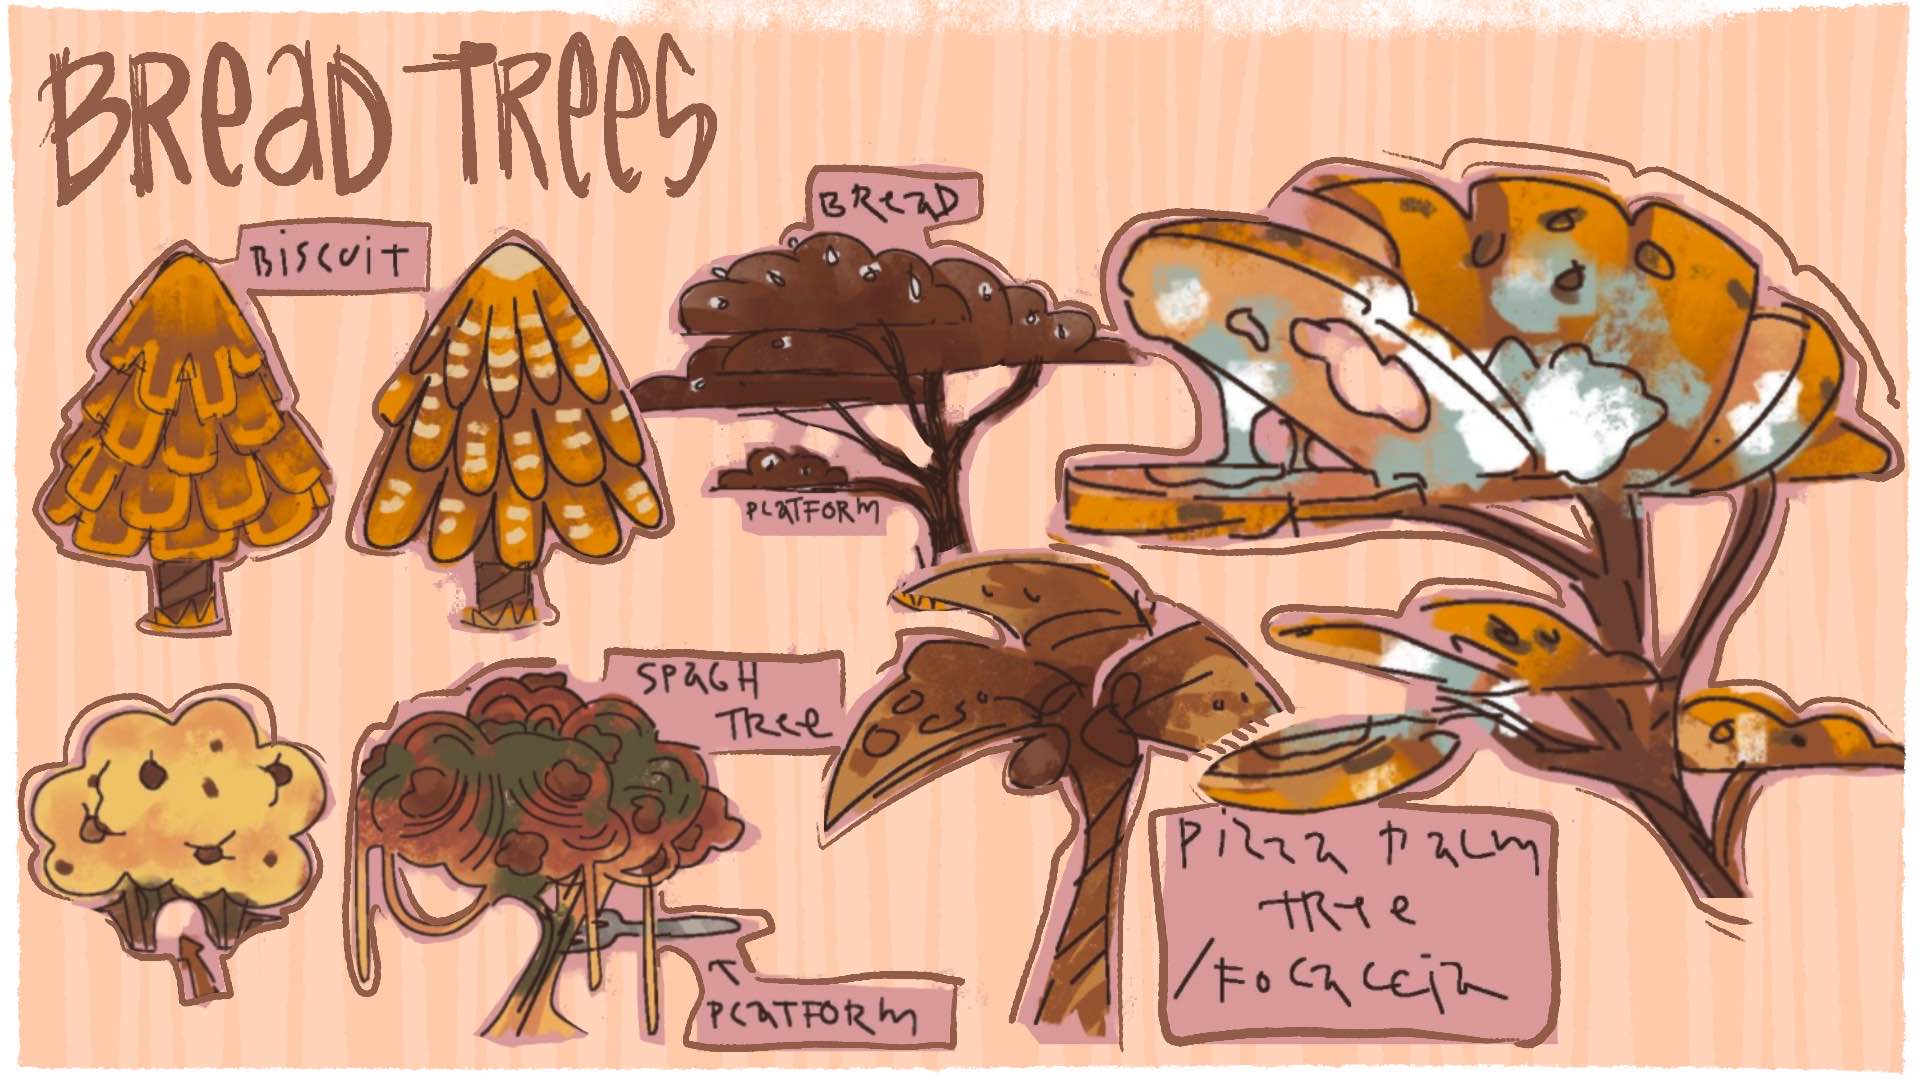 BReaD TRees
BiscuiT
BReaD
PLaTFORM
SPAGH
TRee
PLaTFORM
Pizza Palm
TRee
/Focaccia